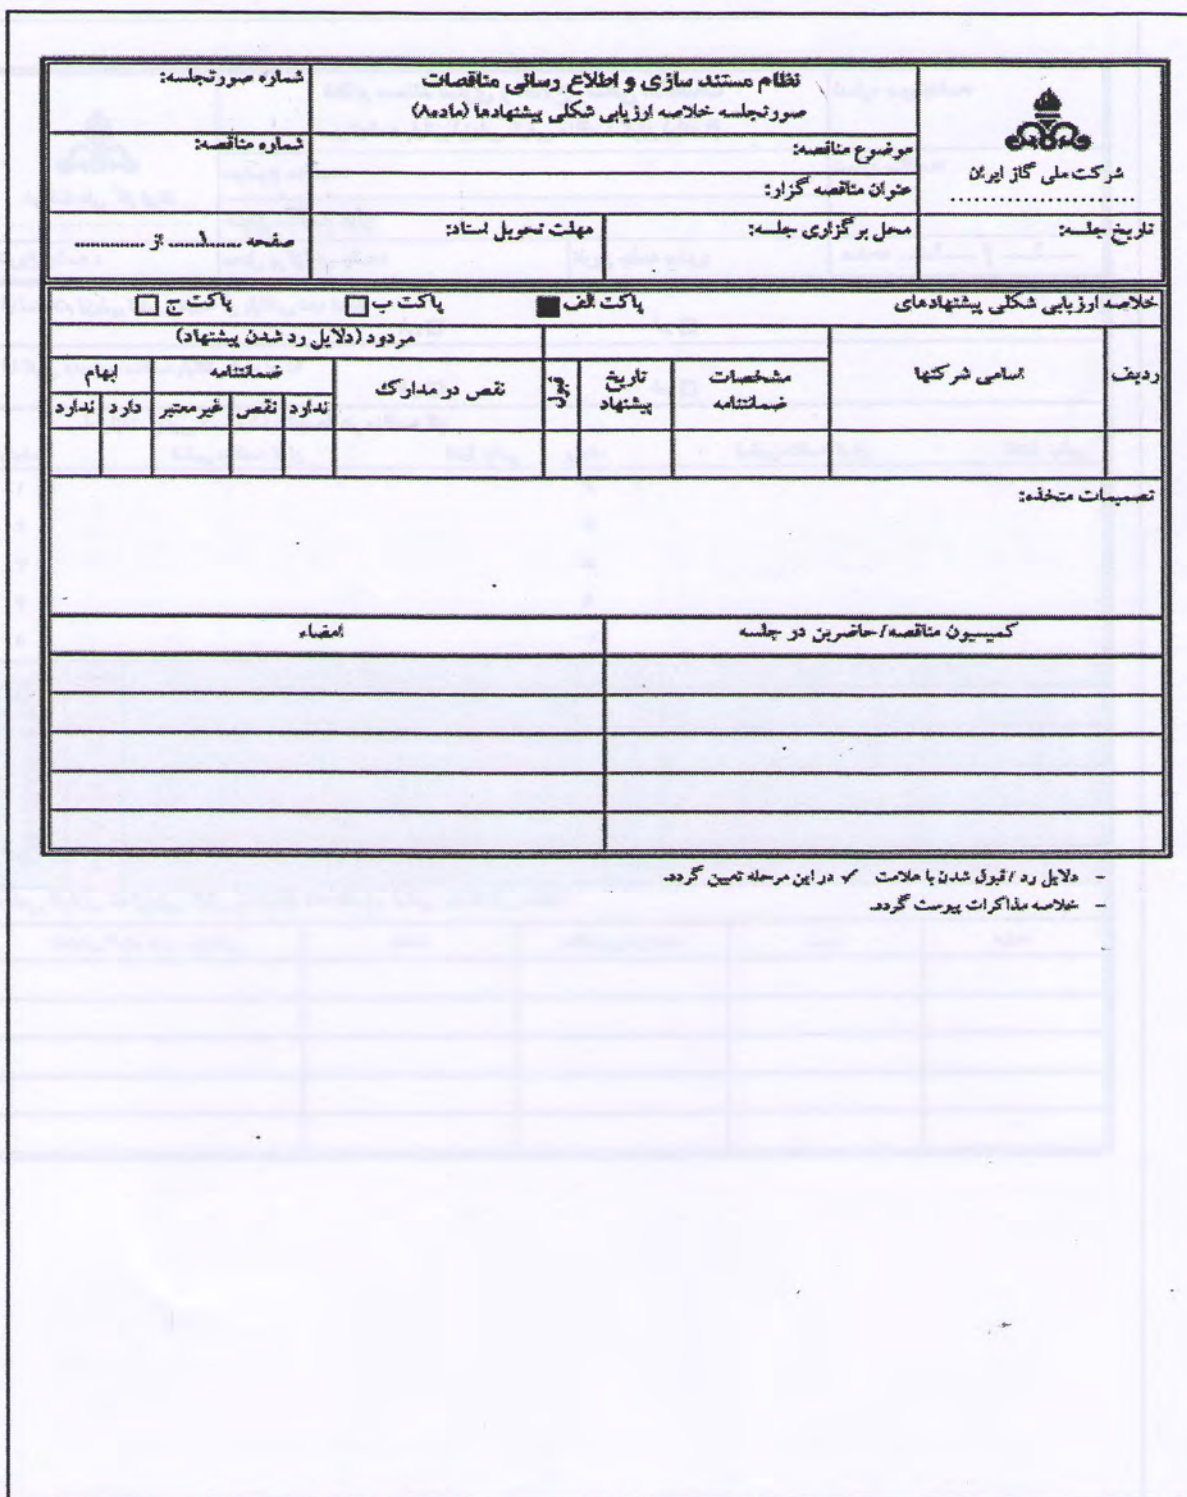 شرکت ملی گاز ایران
......................
نظام مستند سازی و اطلاع رسانی مناقصات
صورتجلسه خلاصه ارزیابی شکلی پیشنهادها (ماده۸)
شماره صورتجلسه:
موضوع مناقصه:
شماره مناقصه:
عنوان مناقصه گزار:
تاریخ جلسه:
محل برگزاری جلسه:
مهلت تحویل اسناد:
صفحه ........۱..... از ..............
خلاصه ارزیابی شکلی پیشنهادهای پاکت الف ■ پاکت ب □ پاکت ج □
ردیف
اسامی شرکتها
مشخصات
ضمانتنامه
تاریخ
پیشنهاد
قبول
مردود (دلایل رد شدن پیشنهاد)
نقص در مدارک
ضمانتنامه
ندارد نقص غیرمعتبر
ابهام
دارد ندارد
تصمیمات متخذه:
کمیسیون مناقصه/حاضرین در جلسه
امضاء
- دلایل رد / قبول شدن با علامت ✓ در این مرحله تعیین گردد.
- خلاصه مذاکرات پیوست گردد.